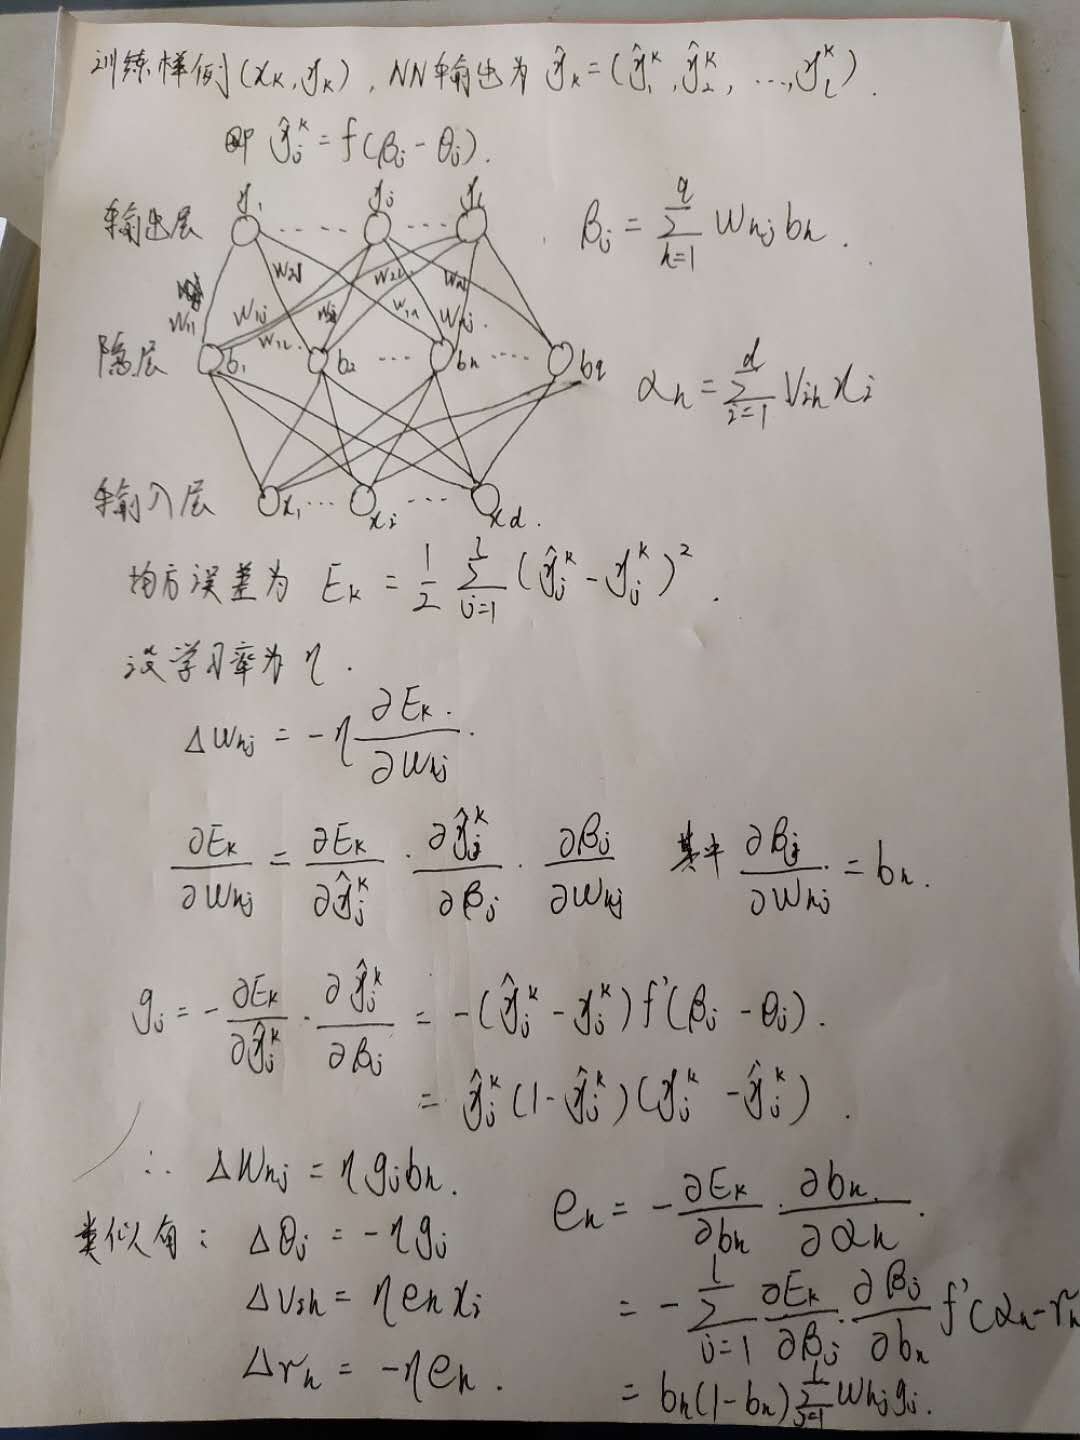 训练样例(x_k, y_k), NN输出为 ŷ_k = (ŷ_1^k, ŷ_2^k, ..., y_l^k).
即 ŷ_j^k = f(β_j - θ_j).
y_1 y_j y_l
输出层
β_j = Σ_{h=1}^{q} w_{hj} b_h.
w_{11} w_{1j} w_{1l}. w_{2j} w_{hj}.
隐层 b_1 b_2 ... b_h ... b_q
α_h = Σ_{i=1}^{d} v_{ih} x_i
输入层 x_1 ... x_i ... x_d.
均方误差为 E_k = 1/2 Σ_{j=1}^{l} (ŷ_j^k - y_j^k)^2.
设学习率为 η.
Δw_{hj} = -η ∂E_k/∂w_{hj}.
∂E_k/∂w_{hj} = ∂E_k/∂ŷ_j^k · ∂ŷ_j^k/∂β_j · ∂β_j/∂w_{hj} 其中 ∂β_j/∂w_{hj} = b_h.
g_j = -∂E_k/∂ŷ_j^k · ∂ŷ_j^k/∂β_j = -(ŷ_j^k - y_j^k) f'(β_j - θ_j).
= ŷ_j^k (1 - ŷ_j^k)(y_j^k - ŷ_j^k).
∴ Δw_{hj} = η g_j b_h.
类似有: Δθ_j = -η g_j
Δv_{ih} = η e_h x_i
Δγ_h = -η e_h.
e_h = -∂E_k/∂b_h · ∂b_h/∂α_h.
= -Σ_{j=1}^{l} ∂E_k/∂β_j · ∂β_j/∂b_h f'(α_h - γ_h
= b_h(1 - b_h) Σ_{j=1}^{l} w_{hj} g_j.